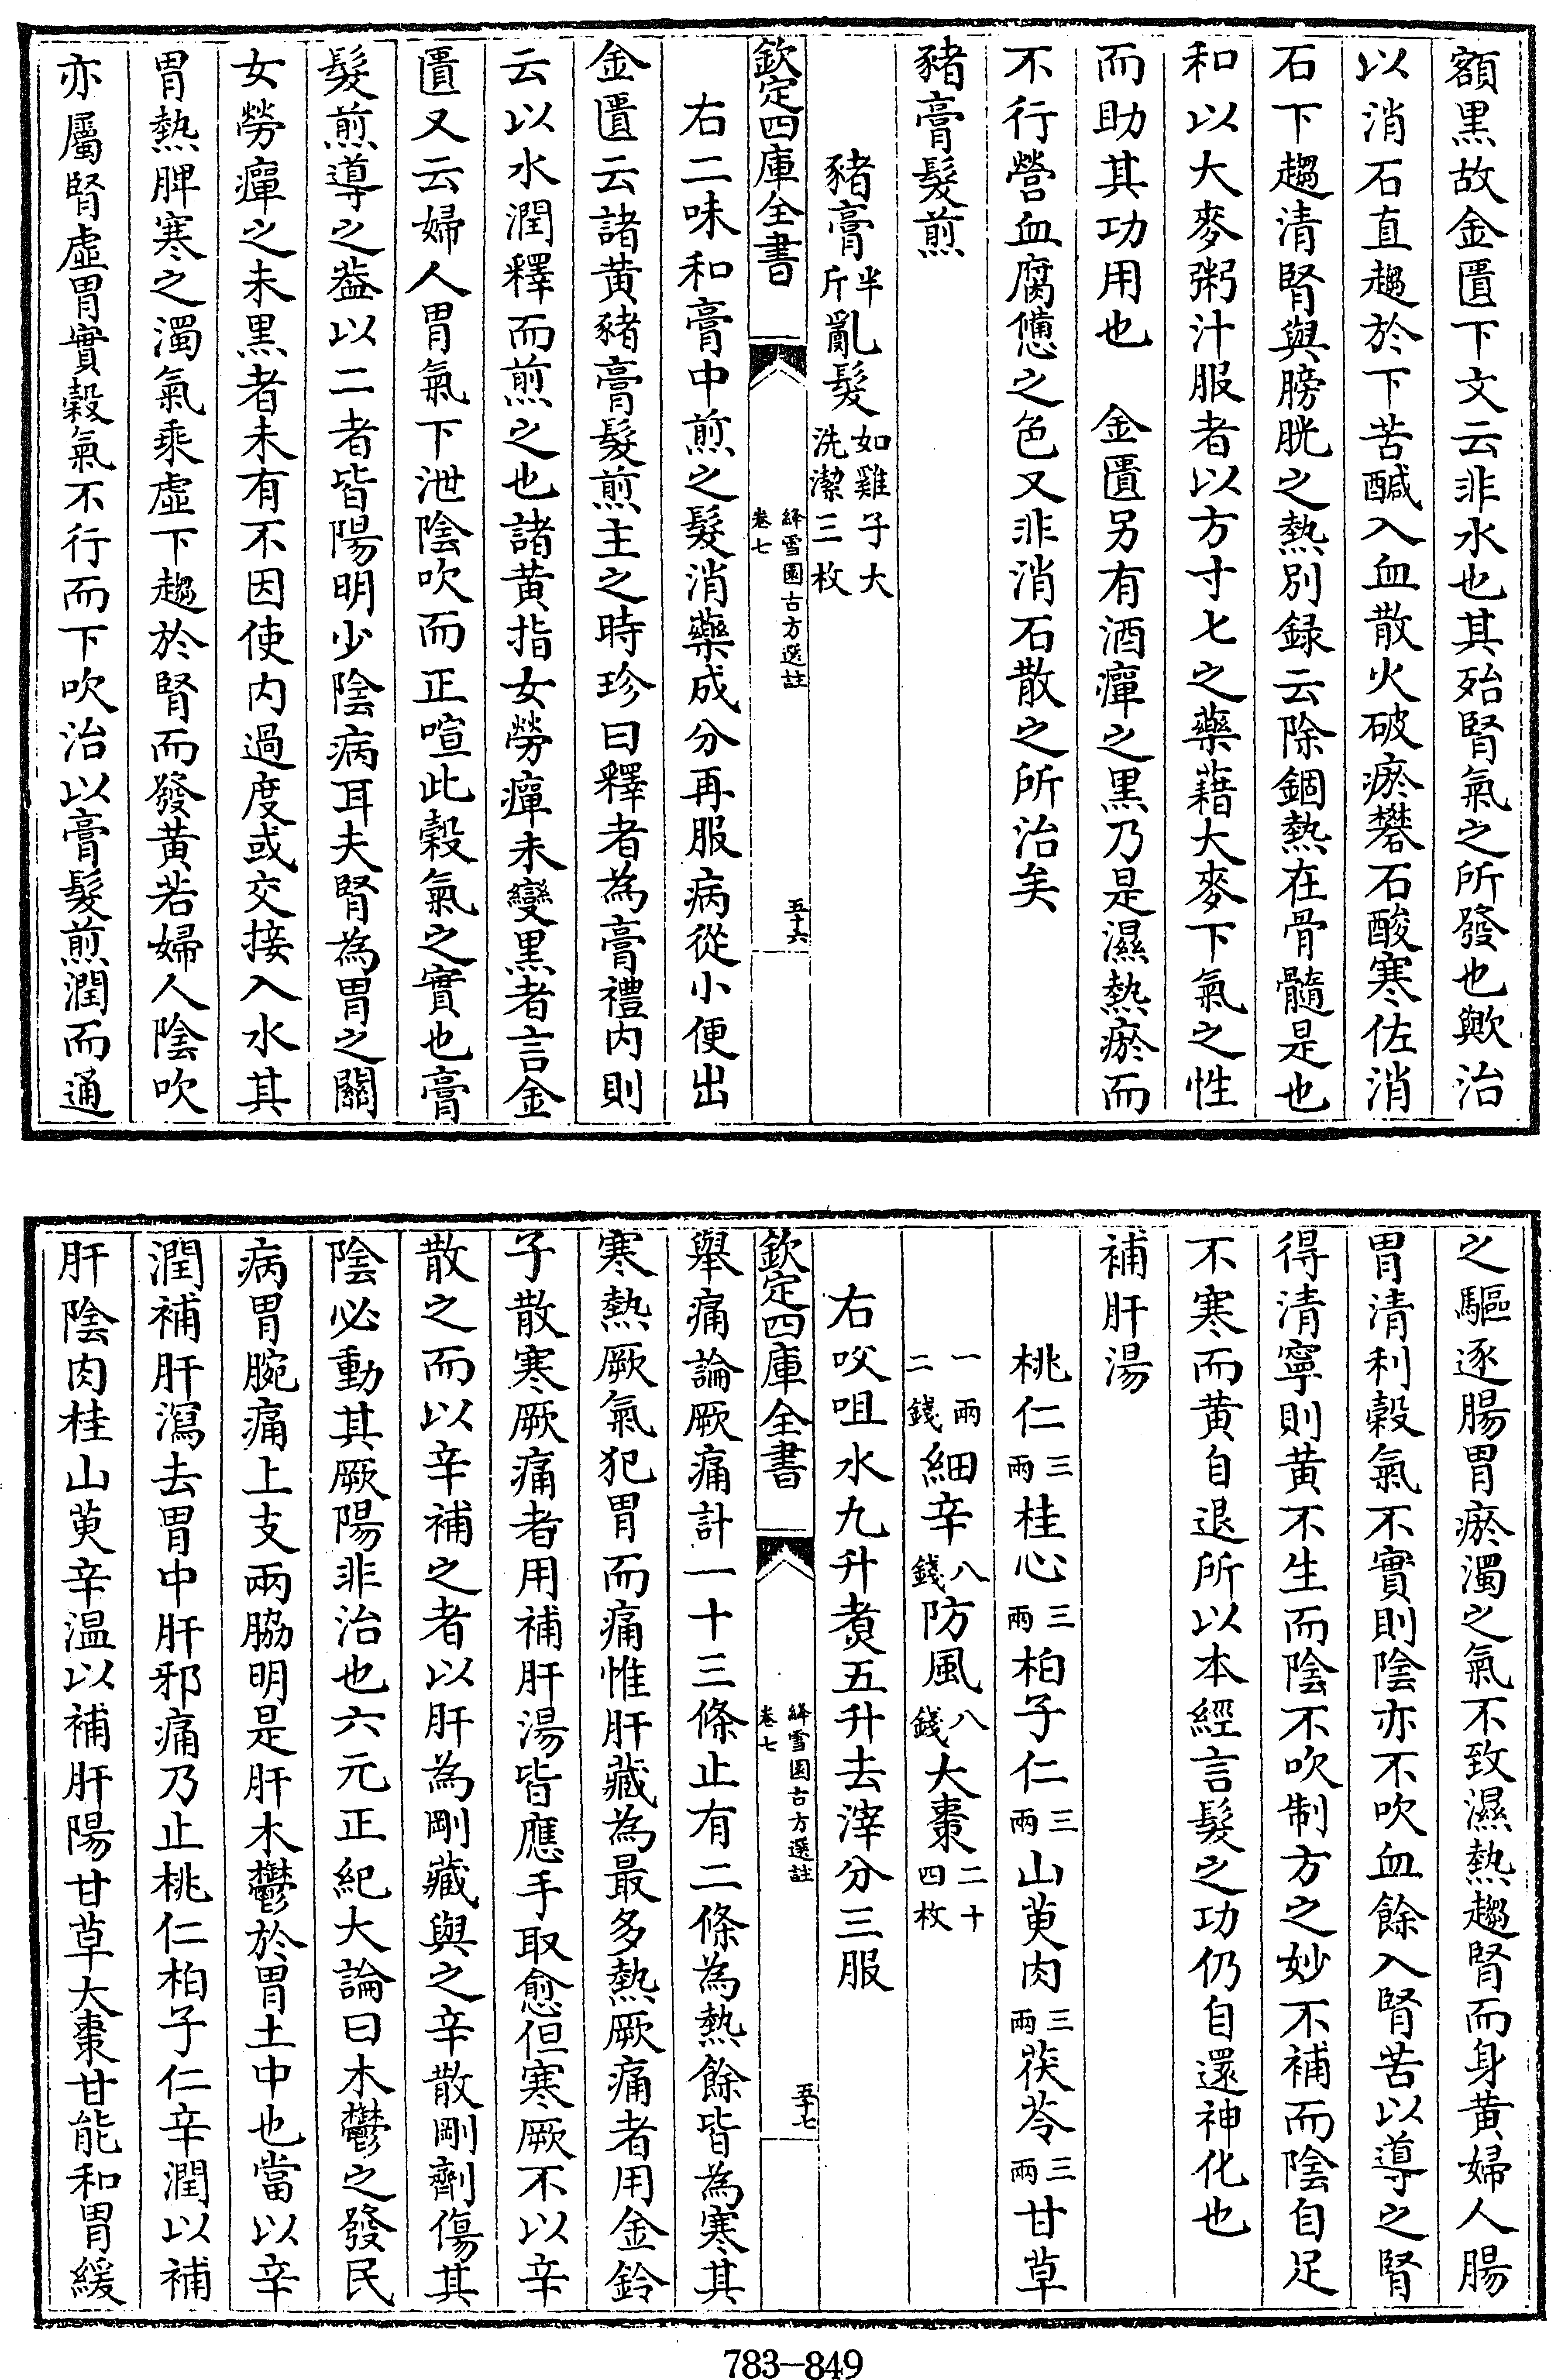 額黒故金匱下文云非水也其殆腎氣之所發也歟治
以消石直趨於下苦醎入血散火破瘀礬石酸寒佐消
石下趨清腎與膀胱之熱別録云除錮熱在骨髓是也
和以大麥粥汁服者以方寸七之藥藉大麥下氣之性
而助其功用也　金匱另有酒癉之黒乃是濕熱瘀而
不行營血腐憊之色又非消石散之所治矣
豬膏髮煎
豬膏半斤亂髮如雞子大洗潔三枚
欽定四庫全書　絳雪園古方選註卷七　五十六
右二味和膏中煎之髮消藥成分再服病從小便出
金匱云諸黃豬膏髮煎主之時珍曰釋者為膏禮内則
云以水潤釋而煎之也諸黃指女勞癉未變黒者言金
匱又云婦人胃氣下泄陰吹而正喧此穀氣之實也膏
髮煎導之葢以二者皆陽明少陰病耳夫腎為胃之關
女勞癉之未黒者未有不因使内過度或交接入水其
胃熱脾寒之濁氣乘虛下趨於腎而發黃若婦人陰吹
亦屬腎虛胃實穀氣不行而下吹治以膏髮煎潤而通
之驅逐腸胃瘀濁之氣不致濕熱趨腎而身黃婦人腸
胃清利穀氣不實則陰亦不吹血餘入腎苦以導之腎
得清寧則黃不生而陰不吹制方之妙不補而陰自足
不寒而黃自退所以本經言髮之功仍自還神化也
補肝湯
桃仁三兩桂心三兩柏子仁三兩山萸肉三兩茯苓三兩甘草
一兩二錢細辛八錢防風八錢大棗二十四枚
右㕮咀水九升煑五升去滓分三服
欽定四庫全書　絳雪園古方選註卷七　五十七
舉痛論厥痛計一十三條止有二條為熱餘皆為寒其
寒熱厥氣犯胃而痛惟肝藏為最多熱厥痛者用金鈴
子散寒厥痛者用補肝湯皆應手取愈但寒厥不以辛
散之而以辛補之者以肝為剛藏與之辛散剛劑傷其
陰必動其厥陽非治也六元正紀大論曰木鬱之發民
病胃脘痛上支兩脇明是肝木鬱於胃土中也當以辛
潤補肝瀉去胃中肝邪痛乃止桃仁柏子仁辛潤以補
肝陰肉桂山萸辛温以補肝陽甘草大棗甘能和胃緩
783—849